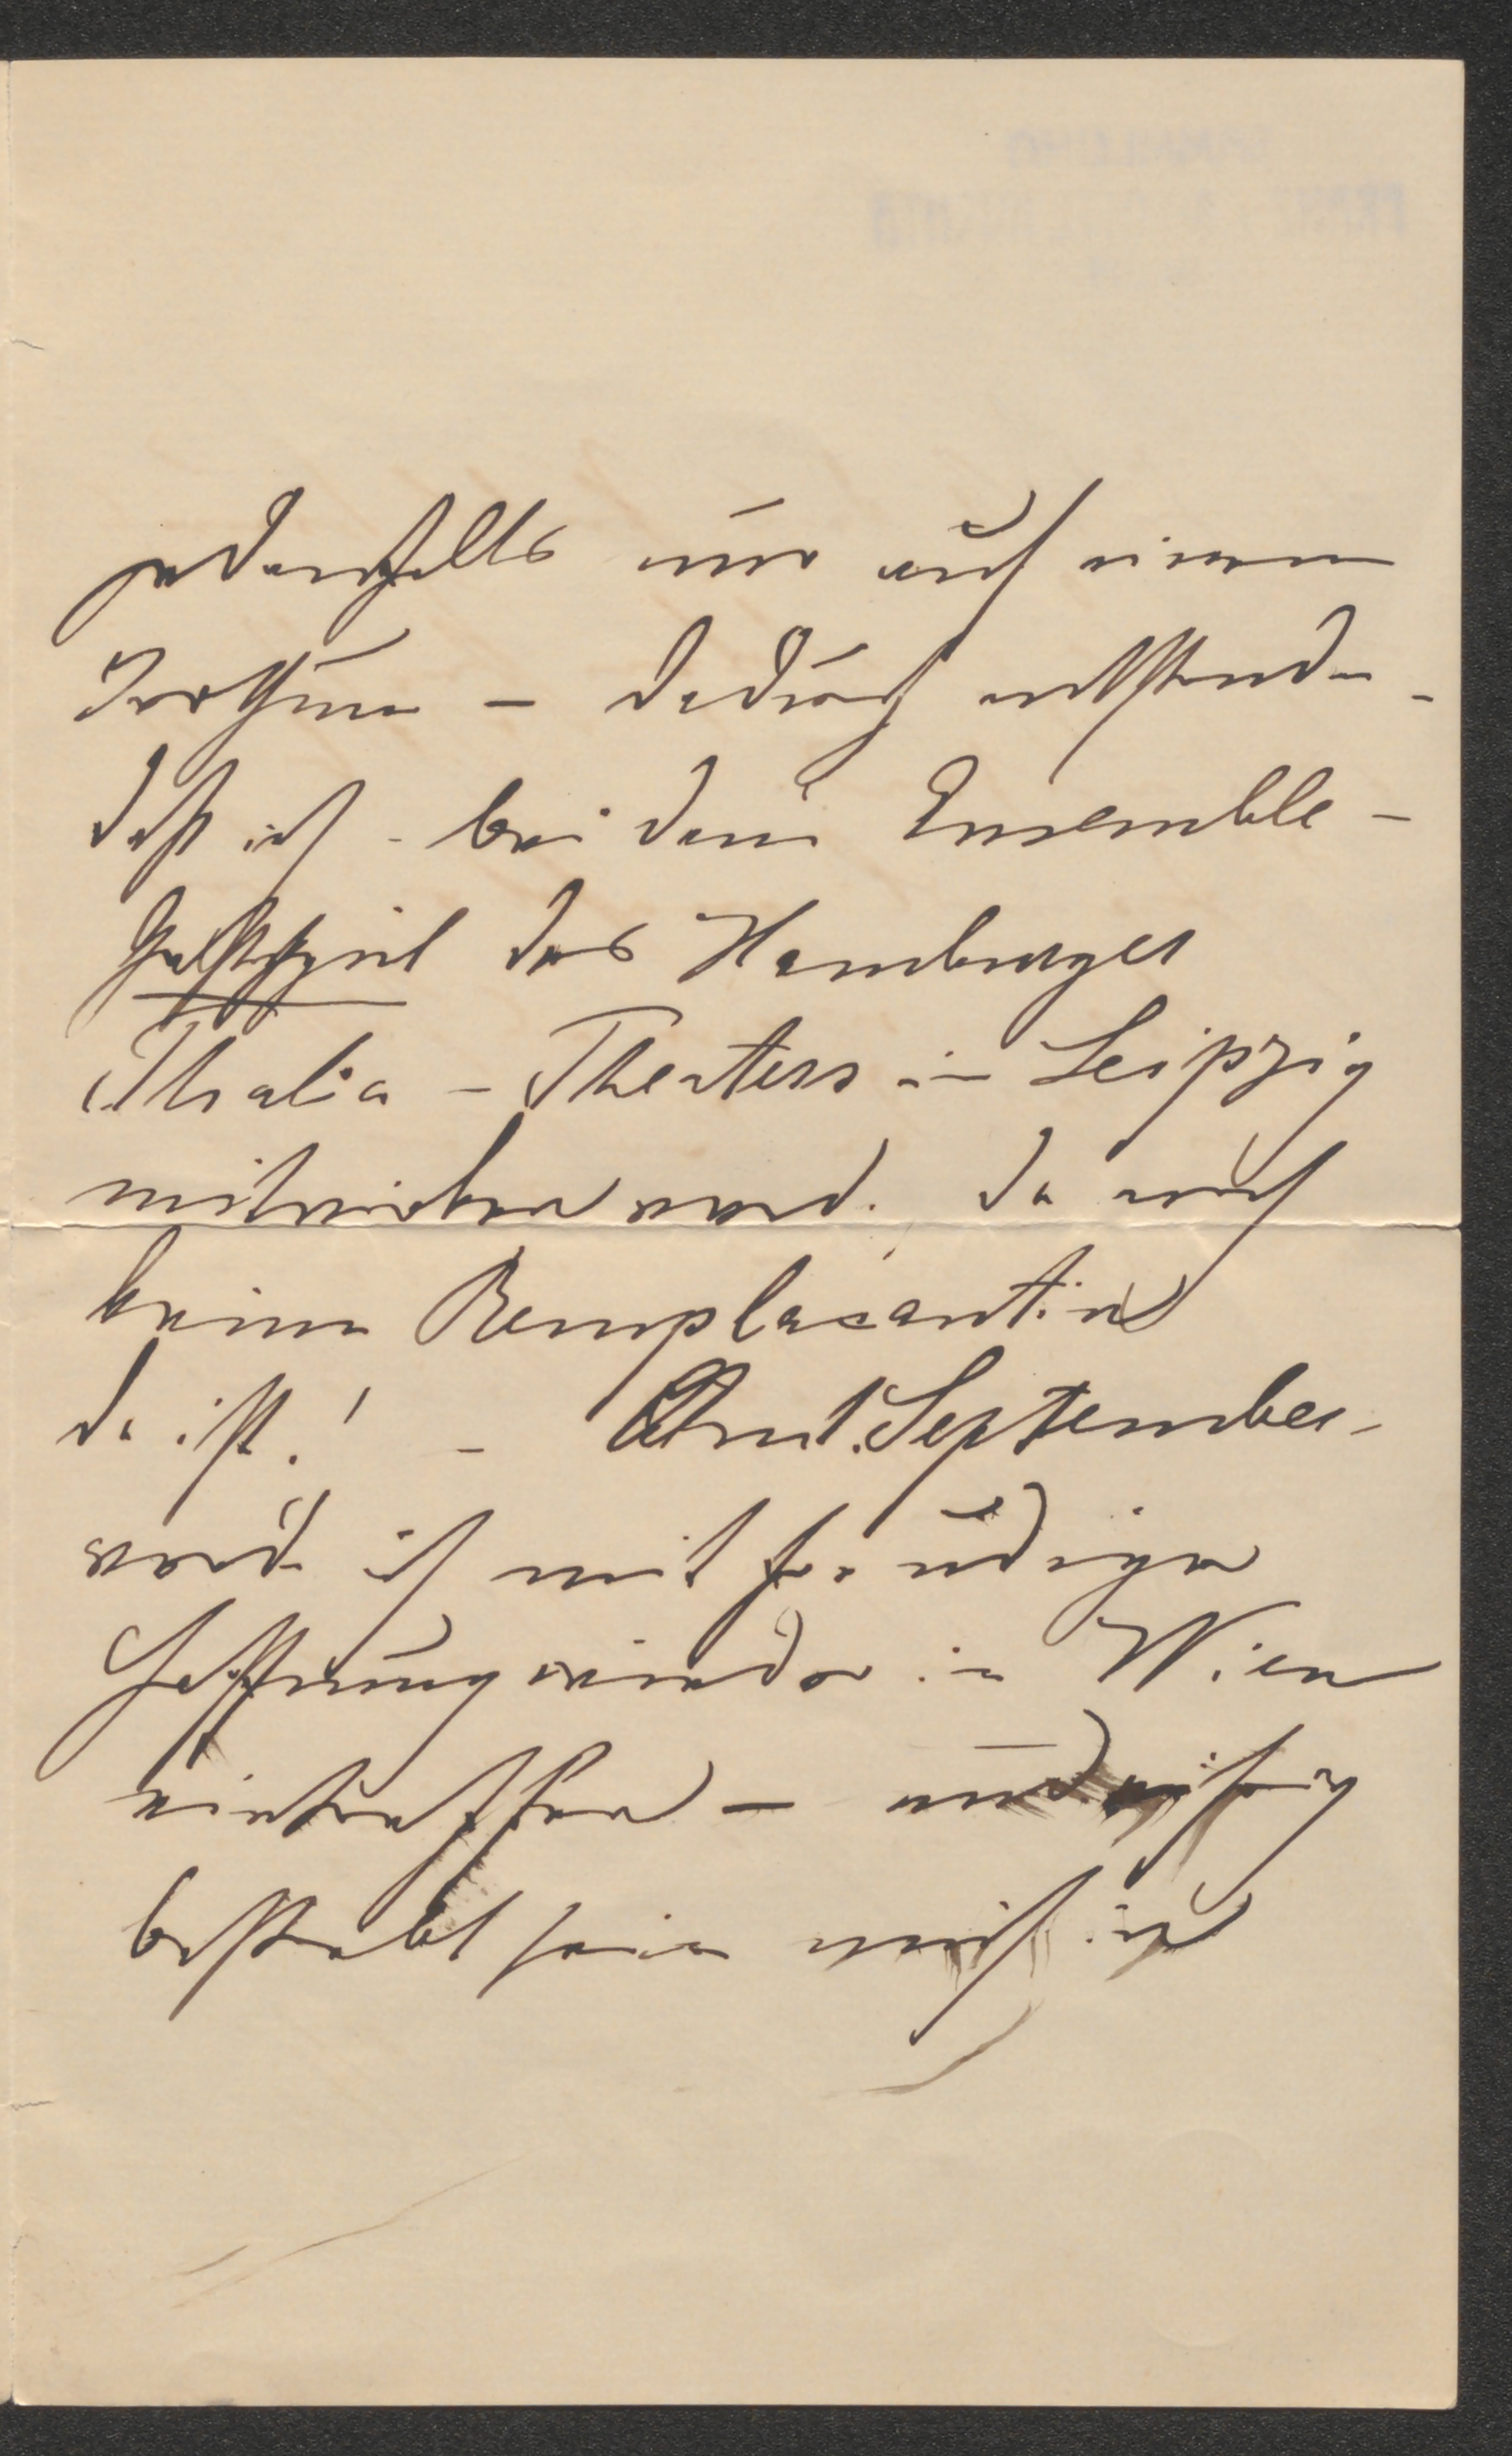 jedenfalls nur auf einem
Irrthum – dadurch entstanden –
daß ich – bei dem Ensemble –
Gastspiel des Hamburger
Thalia – Theaters in Leipzig
mitwirken werde. da noch
keine Remplacantin
da ist! – Am 1. September –
werde ich mit freudiger
Hoffnung wieder in Wien
eintreffen – und eifrig
bestrebt sein mich in